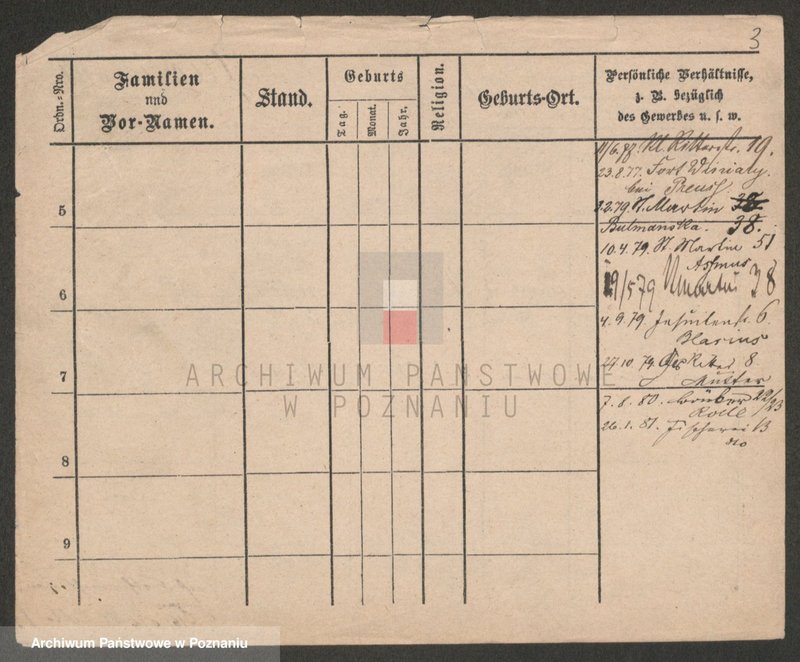 3
Ordn.-Nro.
Familien
und
Vor-Namen.
Stand.
Geburts
Tag.
Monat.
Jahr.
Religion.
Geburts-Ort.
Persönliche Verhältnisse,
z. B. bezüglich
des Gewerbes u. s. w.
Kl. Ritterstr. 19.
23.8.77. Fort Winiary
bei Preuss.
5
2.79. St. Martin
Butmanska. 38.
10.4.79. St. Martin 51
Assmus
6
19/5 79 Martin 38
4.9.79. Jesuitenstr. 6
Blasius
27.10.79. 8
7
Mutter
7.8.80. 22/23
26.1.81. Fischerei 13
8
9
ARCHIWUM PAŃSTWOWE
W POZNANIU
Archiwum Państwowe w Poznaniu